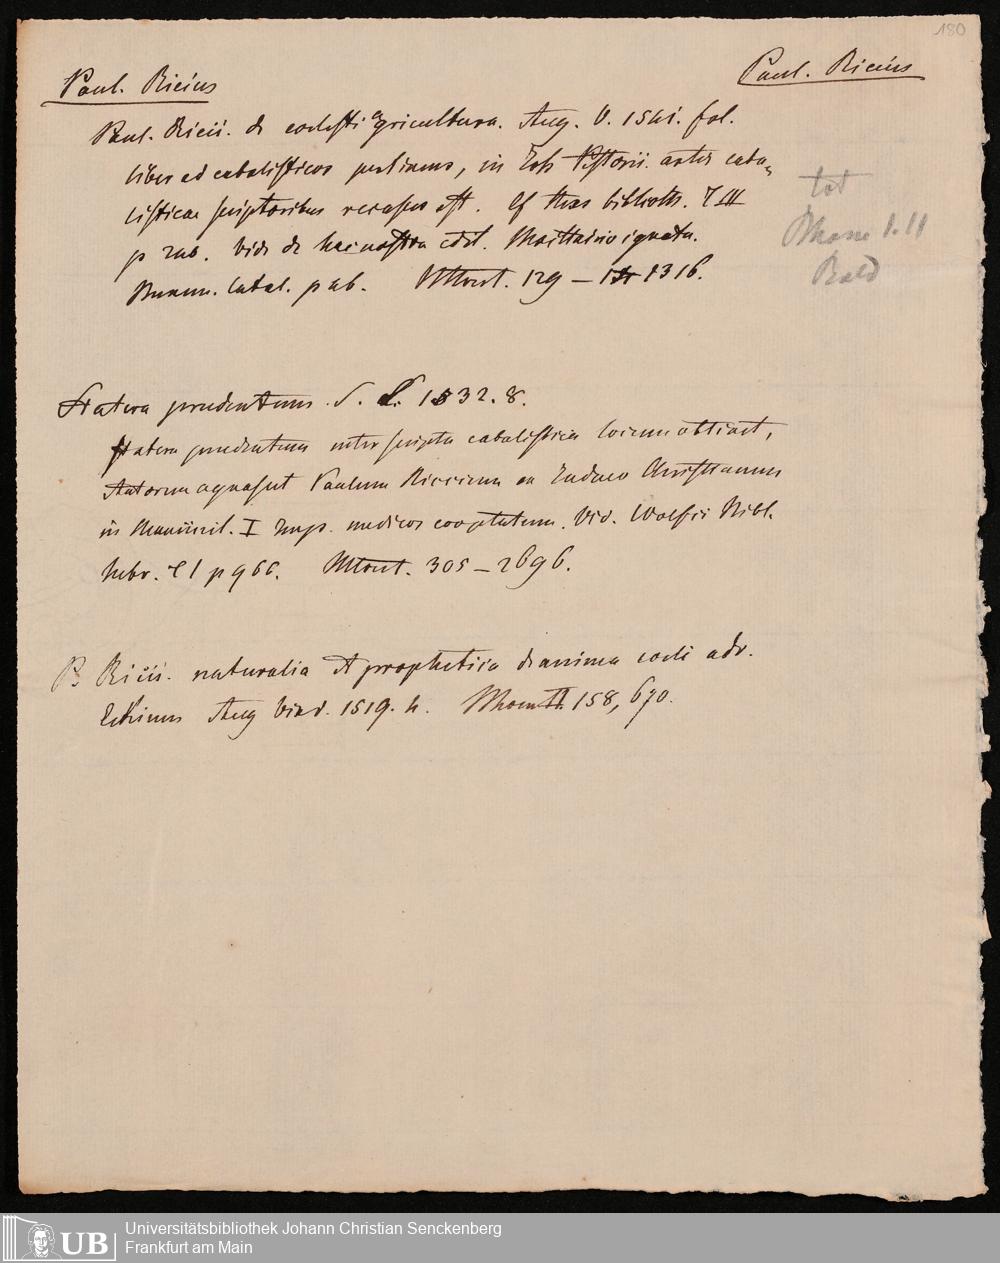 180
Paul. Ricius
Paul. Ricius
Paul. Ricii. de coelesti agricultura. Aug. V. 1541. fol.
liber ad cabalisticos pertinens, in Joh Pistorii artis caba-
listicae scriptoribus recusus est. Cf thes biblioth. T III
p 206. Vide de hac nostra edit. Maittairio ignota.
Bunem. Catal. p 26. Mout. 129 — 1316.
tot
1. II
Statera prudentum. S. L. 1532. 8.
Statera prudentum inter scripta cabalistica locum obtinet,
Autorem agnoscit Paulum Riccium ex Judaeo Christianum
in Maximil. I Imp. medicos cooptatum. Vid. Wolfii Bibl.
hebr. T 1 p 966. Mout. 305 — 2696.
P. Ricii. naturalia et prophetica de anima coeli adv.
Eckium Aug Vind. 1519. 4. II. 158, 670.
UB
Universitätsbibliothek Johann Christian Senckenberg
Frankfurt am Main